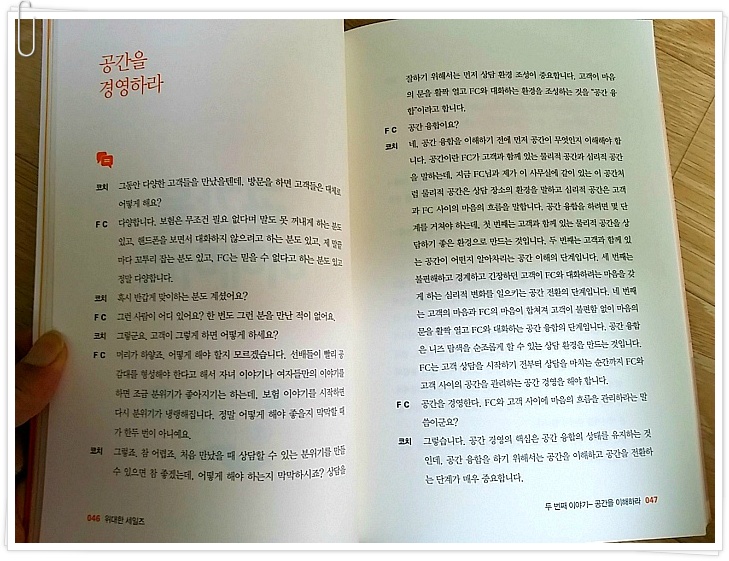 공간을
경영하라
코치 그동안 다양한 고객들을 만났을텐데, 방문을 하면 고객들은 대체로
어떻게 해요?
F C 다양합니다. 보험은 무조건 필요 없다며 말도 못 꺼내게 하는 분도
있고, 핸드폰을 보면서 대화하지 않으려고 하는 분도 있고, 제 말끝
마다 꼬투리 잡는 분도 있고, FC는 믿을 수 없다고 하는 분도 있고
정말 다양합니다.
코치 혹시 반갑게 맞이하는 분도 계셨어요?
F C 그런 사람이 어디 있어요? 한 번도 그런 분을 만난 적이 없어요.
코치 그렇군요. 고객이 그렇게 하면 어떻게 하세요?
F C 머리가 하얗죠. 어떻게 해야 할지 모르겠습니다. 선배들이 빨리 공
감대를 형성해야 한다고 해서 자녀 이야기나 여자들만의 이야기를
하면 조금 분위기가 좋아지기는 하는데, 보험 이야기를 시작하면
다시 분위기가 냉랭해집니다. 정말 어떻게 해야 좋을지 막막할 때
가 한두 번이 아니예요.
코치 그렇죠. 참 어렵죠. 처음 만났을 때 상담할 수 있는 분위기를 만들
수 있으면 참 좋겠는데, 어떻게 해야 하는지 막막하시죠? 상담을
046 위대한 세일즈
잘하기 위해서는 먼저 상담 환경 조성이 중요합니다. 고객이 마음
의 문을 활짝 열고 FC와 대화하는 환경을 조성하는 것을 “공간 융
합”이라고 합니다.
F C 공간 융합이요?
코치 네, 공간 융합을 이해하기 전에 먼저 공간이 무엇인지 이해해야 합
니다. 공간이란 FC가 고객과 함께 있는 물리적 공간과 심리적 공간
을 말하는데, 지금 FC님과 제가 이 사무실에 같이 있는 이 공간처
럼 물리적 공간은 상담 장소의 환경을 말하고 심리적 공간은 고객
과 FC 사이의 마음의 흐름을 말합니다. 공간 융합을 하려면 몇 단
계를 거쳐야 하는데, 첫 번째는 고객과 함께 있는 물리적 공간을 상
담하기 좋은 환경으로 만드는 것입니다. 두 번째는 고객과 함께 있
는 공간이 어떤지 알아차리는 공간 이해의 단계입니다. 세 번째는
불편해하고 경계하고 긴장하던 고객이 FC와 대화하려는 마음을 갖
게 하는 심리적 변화를 일으키는 공간 전환의 단계입니다. 네 번째
는 고객의 마음과 FC의 마음이 합쳐져 고객이 불편함 없이 마음의
문을 활짝 열고 FC와 대화하는 공간 융합의 단계입니다. 공간 융합
은 니즈 탐색을 순조롭게 할 수 있는 상담 환경을 만드는 것입니다.
FC는 고객 상담을 시작하기 전부터 상담을 마치는 순간까지 FC와
고객 사이의 공간을 관리하는 공간 경영을 해야 합니다.
F C 공간을 경영한다. FC와 고객 사이에 마음의 흐름을 관리하라는 말
씀이군요?
코치 그렇습니다. 공간 경영의 핵심은 공간 융합의 상태를 유지하는 것
인데, 공간 융합을 하기 위해서는 공간을 이해하고 공간을 전환하
는 단계가 매우 중요합니다.
두 번째 이야기– 공간을 이해하라 047